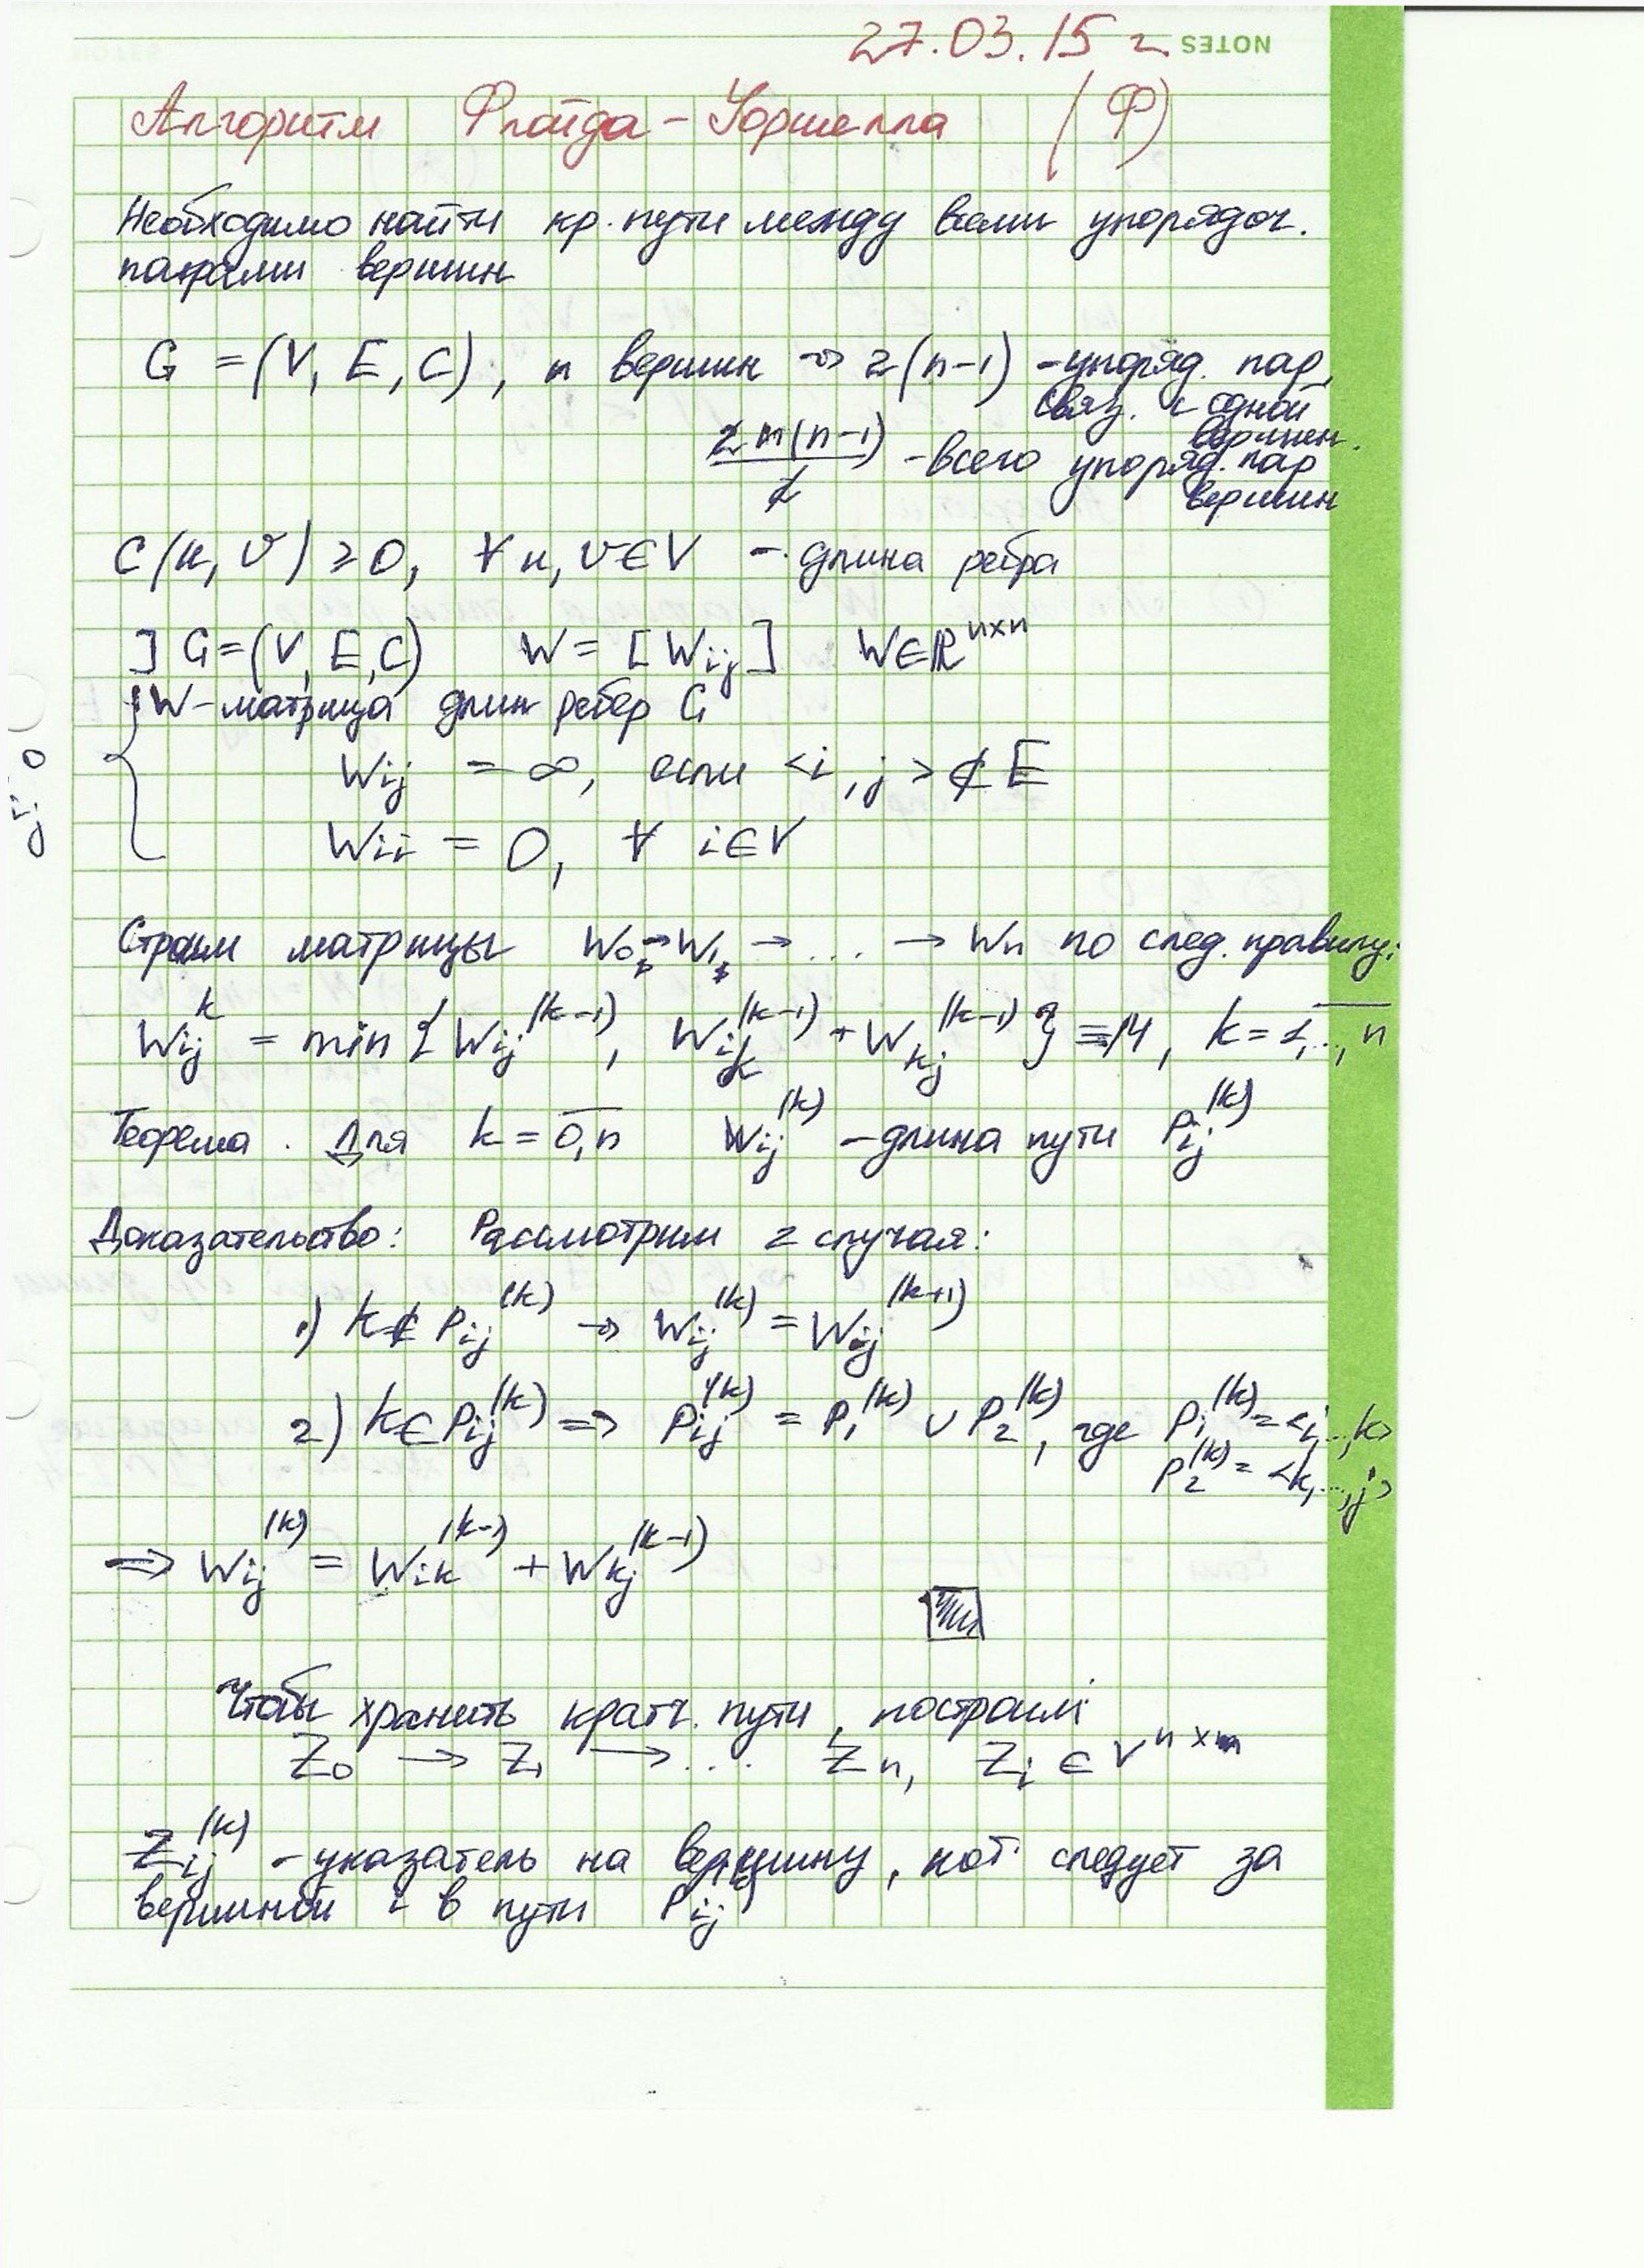 27.03.15 г.
NOTES
Алгоритм Флойда-Уоршелла (Ф)
Необходимо найти кр. пути между всеми упорядоч.
парами вершин
G = (V, E, C), n вершин ⇒ 2(n-1) - упоряд. пар,
связ. с одной
вершин.
2n(n-1)/2 - всего упоряд. пар
вершин
C(u, v) ≥ 0, ∀ u, v ∈ V - длина ребра
] G = (V, E, C) W = [Wij] W ∈ ℝ^{n×n}
W - матрица длин ребер G
Wij = ∞, если <i, j> ∉ E
Wii = 0, ∀ i ∈ V
Строим матрицы W0 → W1 → ... → Wn по след. правилу:
Wij^k = min {Wij^(k-1), Wik^(k-1) + Wkj^(k-1)} ≡ M, k = 1,..., n
Теорема. Для k = 0,n Wij^(k) - длина пути Pij^(k)
Доказательство: Рассмотрим 2 случая:
1) k ∉ Pij^(k) ⇒ Wij^(k) = Wij^(k+1)
2) k ∈ Pij^(k) ⇒ Pij^(k) = P1^(k) ∪ P2^(k), где P1^(k) = <i,...,k>
P2^(k) = <k,...,j>
⇒ Wij^(k) = Wik^(k-1) + Wkj^(k-1)
Чтобы хранить кратч. пути, построим
Z0 → Z1 → ... Zn, Zi ∈ V^{n×n}
Zij^(k) - указатель на вершину, кот. следует за
вершиной i в пути Pij